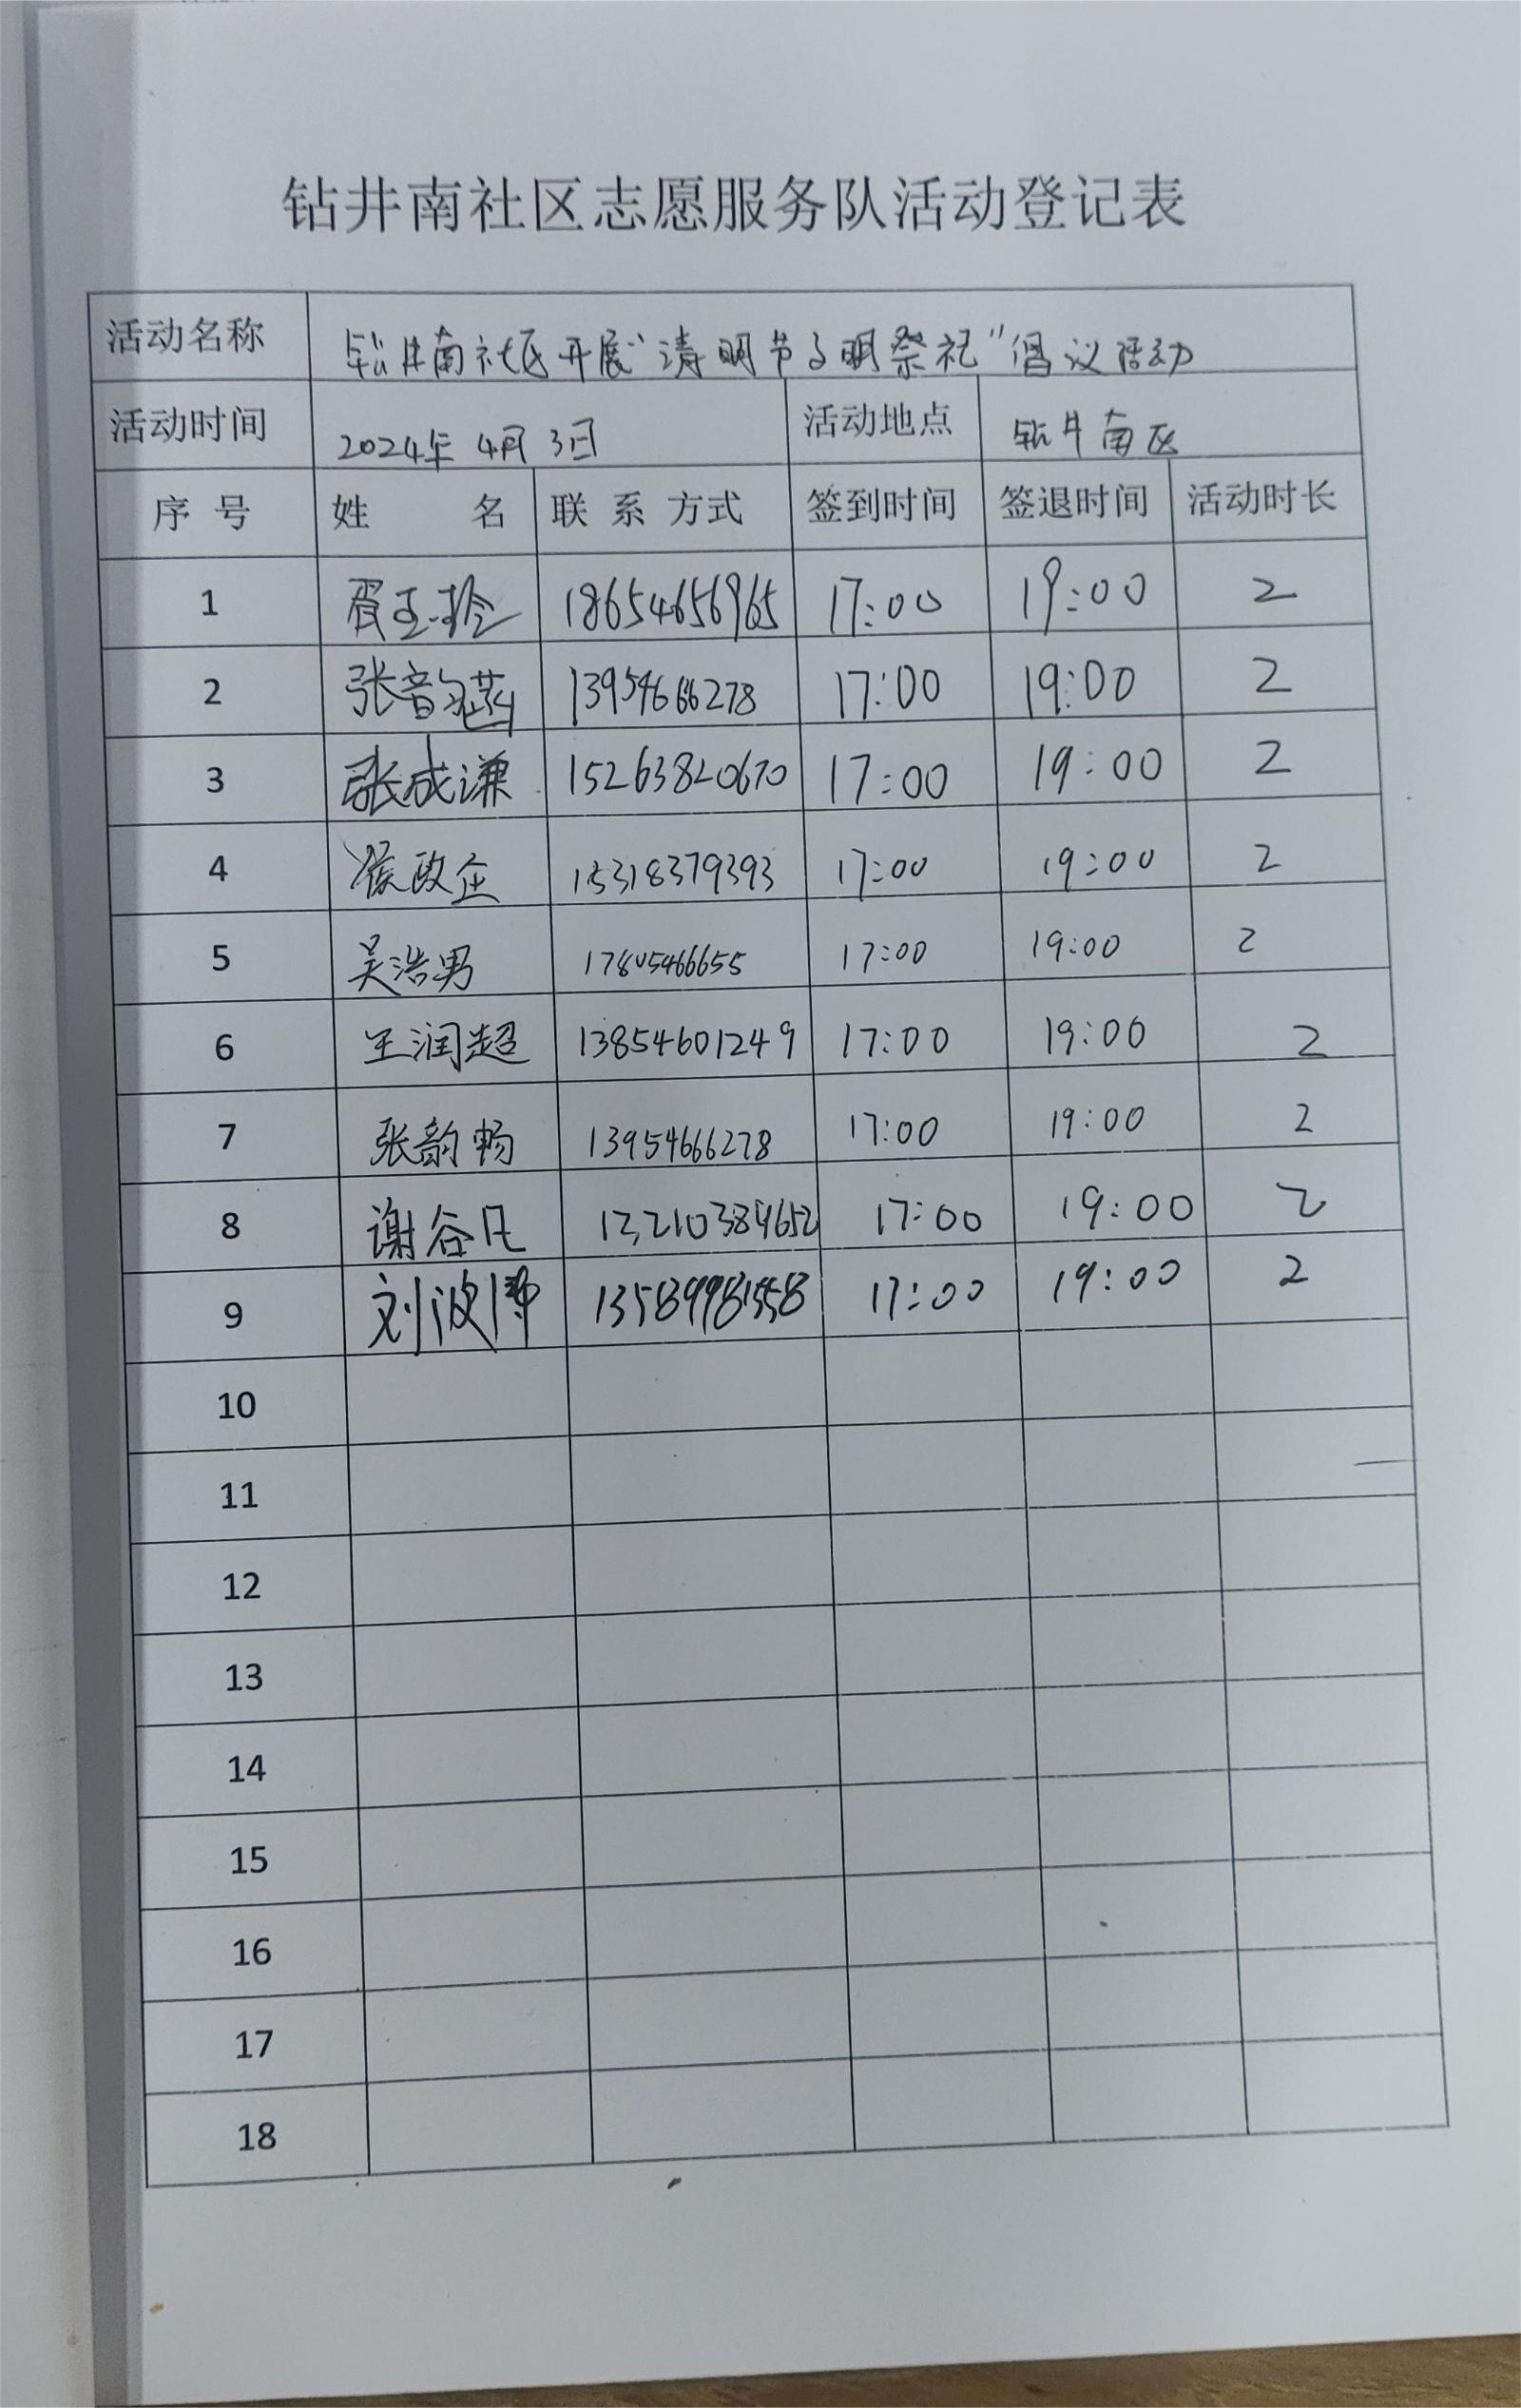 钻井南社区志愿服务队活动登记表
活动名称 钻井南社区开展"清明节文明祭祀"倡议活动
活动时间 2024年4月3日 活动地点 钻井南区
序号 姓名 联系方式 签到时间 签退时间 活动时长
1 胥玉玲 18654656965 17:00 19:00 2
2 张韵菡 13954666278 17:00 19:00 2
3 张成谦 15263820670 17:00 19:00 2
4 侯政企 15318379393 17:00 19:00 2
5 吴浩男 17805466655 17:00 19:00 2
6 王润超 13854601249 17:00 19:00 2
7 张韵畅 13954666278 17:00 19:00 2
8 谢谷凡 17:00 19:00 2
9 刘波 17:00 19:00 2
10
11
12
13
14
15
16
17
18